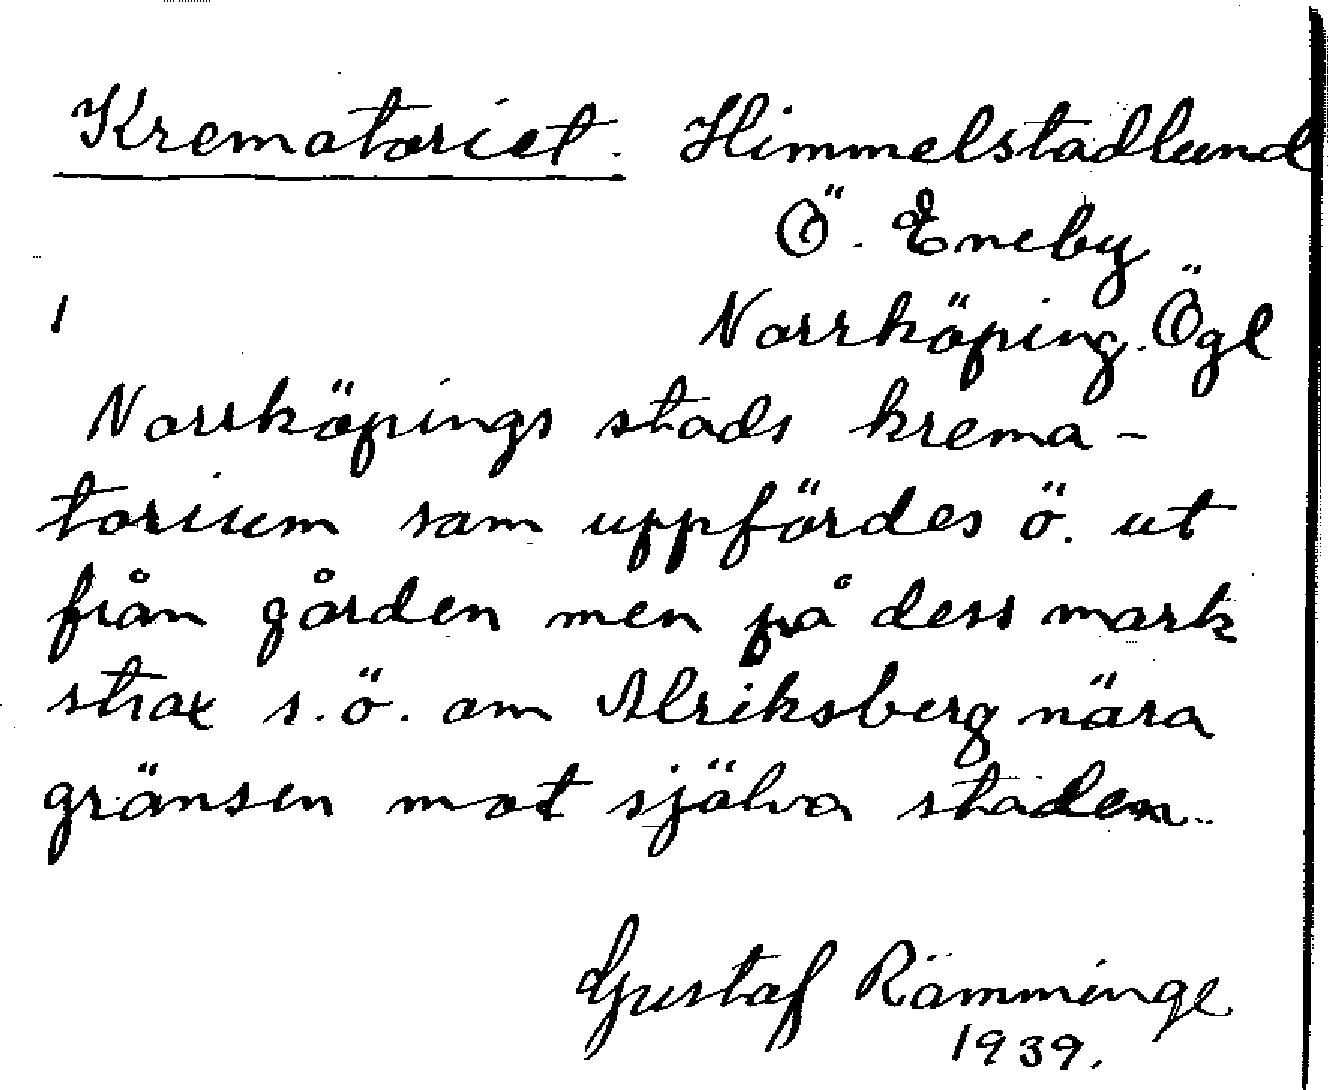 Krematoriet. Himmelstadlund
Ö. Eneby
1 Norrköping. Ögl
Norrköpings stads krema-
torium som uppfördes ö. ut
från gården men på dess mark
strax s.ö. om Alriksberg nära
gränsen mot själva staden.
Gustaf Rämminge
1939.